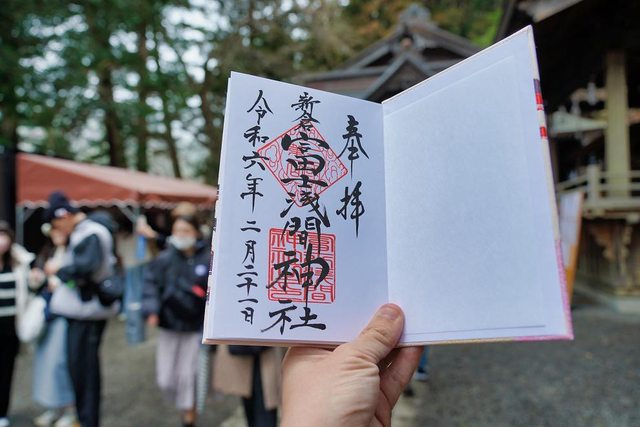 奉拝
新倉富士浅間神社
令和六年二月二十一日